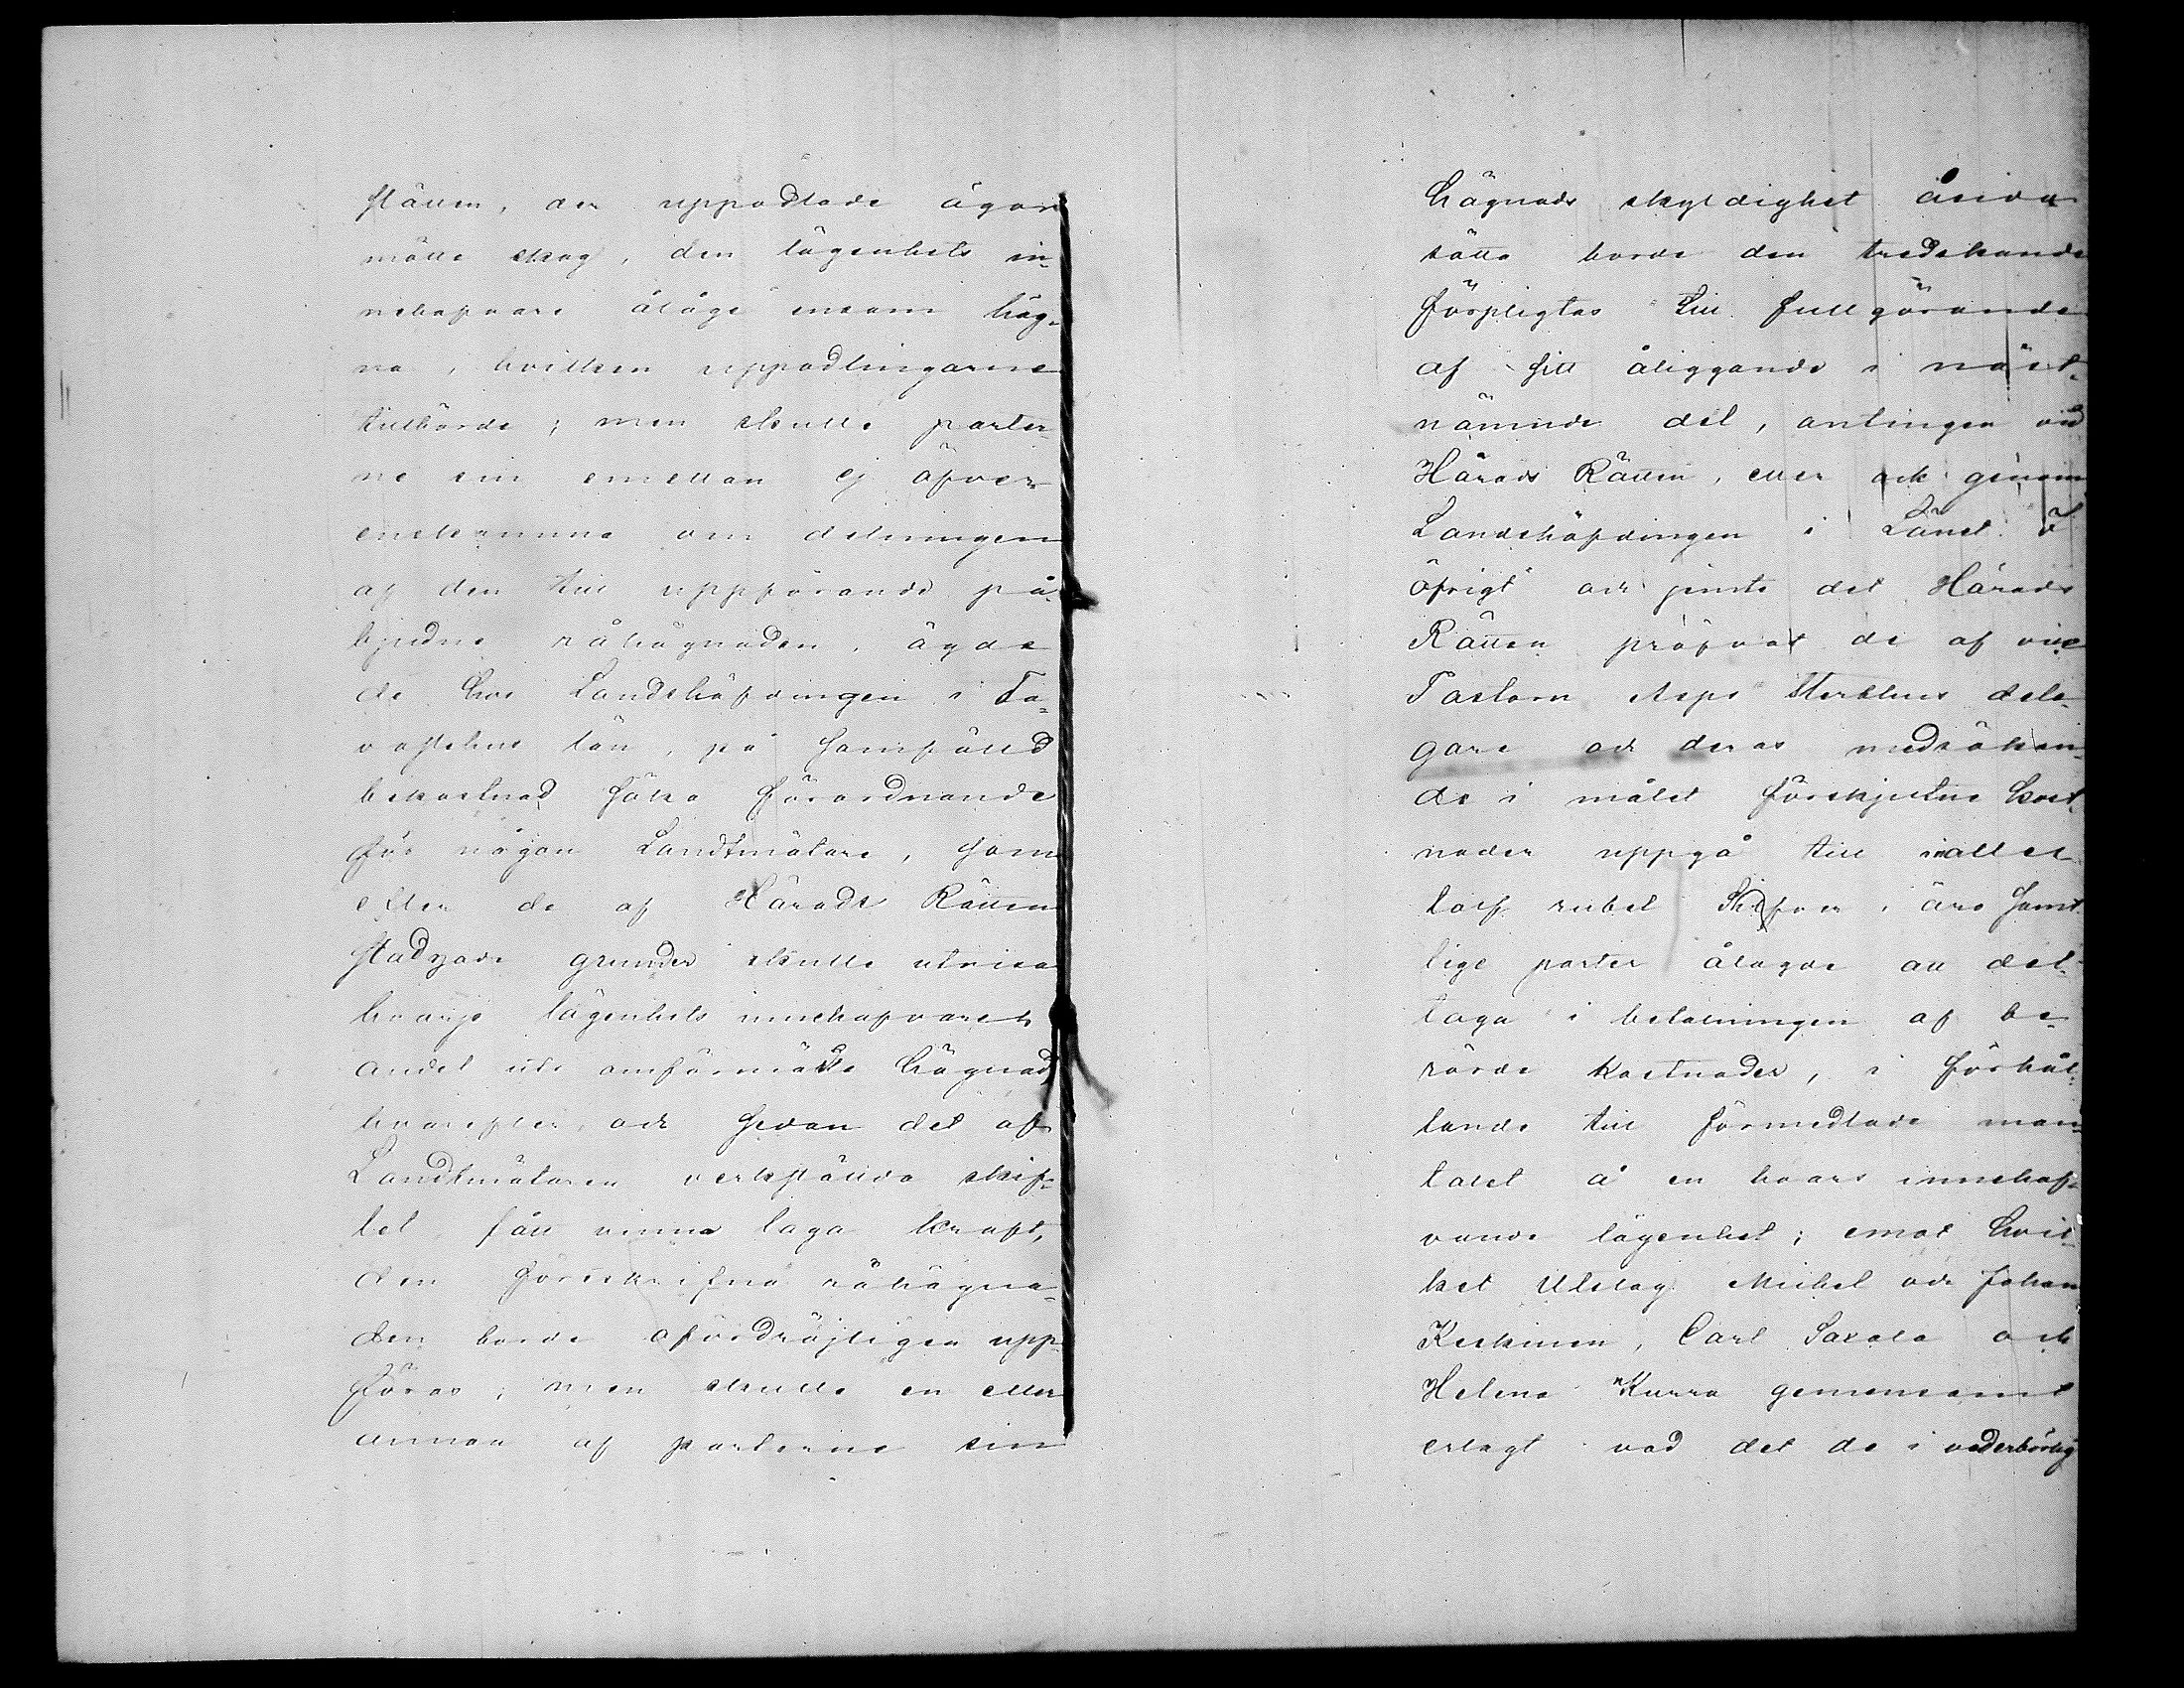 ställen, der uppodlade ägor
mötte skog, den lägenhets in-
nehafvare ålåge ensam häg-
na, hvilken uppodlingarne
tillhörde; men skulle parter-
ne sin emellan ej öfver-
enskomma om delningen
af den till uppförande på-
bjudne råhägnaden, ägde
de hos Landshöfdingen i Ta-
vastehus län, på samfäld
bekostnad söka förordnande
för någon Landtmätare, som
efter de af Härads Rätten
stadgade grunder skulle utvisa
hvarje lägenhets innehafvares
andel uti omförmälte hägnad,
hvarefter och sedan det af
Landtmätaren verkställda skif-
tet fått vinna laga kraft,
den föreskrifna råhägna-
den borde ofördröjligen upp-
föras; men skulle en eller
annan af parterne sin
hägnads skyldighet åsido
sätta borde den tredskande
förpligtas till fullgörande
af sitt åliggande i näst-
nämnde del, antingen vid
Härads Rätten, eller ock genom
Landshöfdingen i Länet. I
öfrigt och jemte det Härads
Rätten pröfvat de af vice
Pastorn Asps Sterbhus dela-
gare och deras medsökan-
de i målet förskjutne kost-
nader uppgå till inalles
tolf rubel Silfver, äro samt-
lige parter ålagde att del-
taga i betalningen af be-
rörde kostnader, i förhål-
lande till förmedlade man-
talet å en hvars innehaf-
vande lägenhet; emot hvil-
ket Utslag Michel och Johan
Keskinen, Carl Saxala och
Helena Kurra gemensamt
erlagt vad det de i vederbörlig